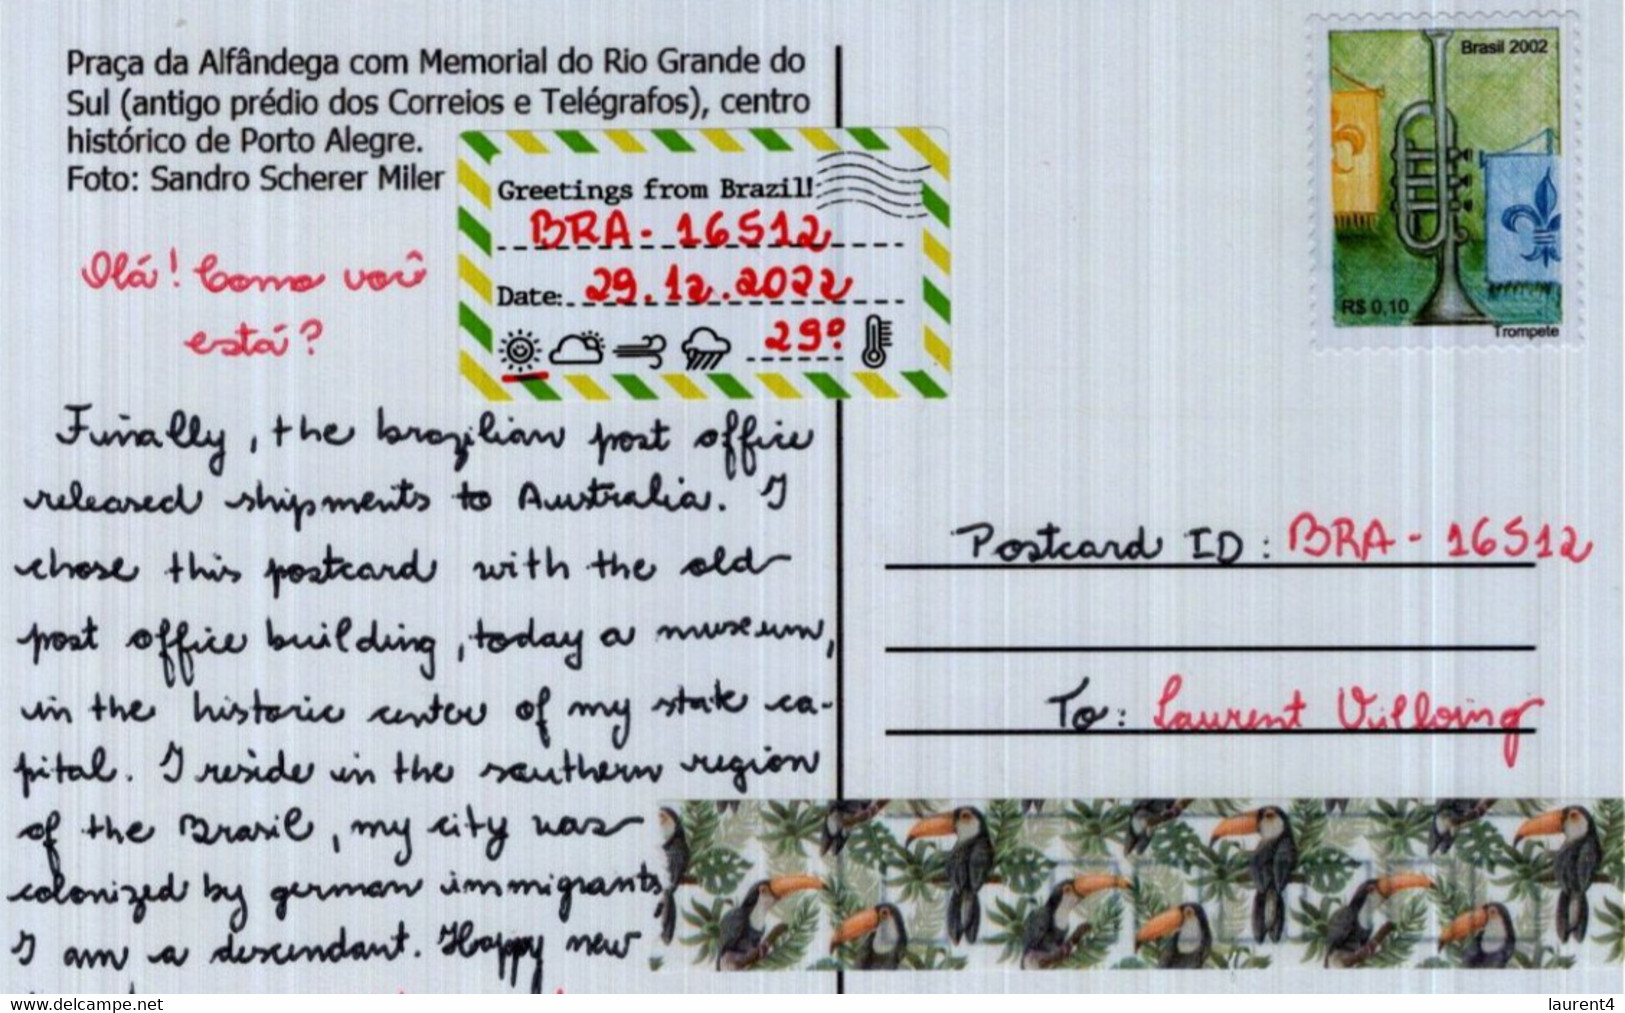 Praça da Alfândega com Memorial do Rio Grande do
Sul (antigo prédio dos Correios e Telégrafos), centro
histórico de Porto Alegre.
Foto: Sandro Scherer Miler
Greetings from Brazil!
BRA - 16512
Date: 29.12.2022
29º
Olá! Como você
está?
Finally, the brazilian post office
released shipments to Australia. I
chose this postcard with the old
post office building, today a museum,
in the historic center of my state ca-
pital. I reside in the southern region
of the Brasil, my city was
colonized by german immigrants,
I am a descendant. Happy new
Brasil 2002
R$ 0,10
Trompete
Postcard ID: BRA - 16512
To: Laurent
www.delcampe.net
laurent4